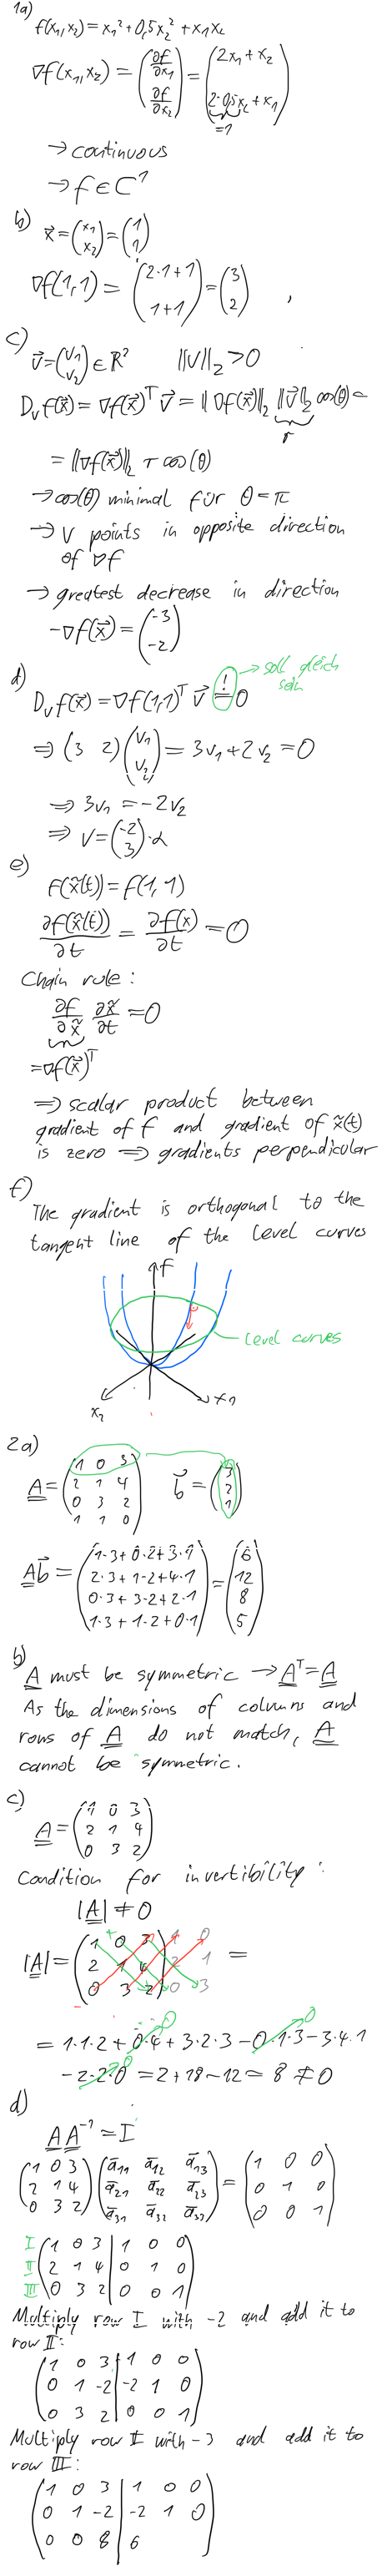 1a)
f(x₁,x₂)=x₁²+0,5x₂²+x₁x₂
∇f(x₁,x₂) = (∂f/∂x₁ ; ∂f/∂x₂) = (2x₁+x₂ ; 2·0,5x₂+x₁)
=1
→ continuous
→ f ∈ C¹
b)
x⃗ = (x₁ ; x₂) = (1 ; 1)
∇f(1,1) = (2·1+1 ; 1+1) = (3 ; 2)
c)
v⃗ = (v₁ ; v₂) ∈ ℝ² ‖v‖₂ > 0
D_v f(x⃗) = ∇f(x⃗)ᵀ v⃗ = ‖∇f(x⃗)‖₂ ‖v⃗‖₂ cos(θ) =
r
= ‖∇f(x⃗)‖₂ r cos(θ)
→ cos(θ) minimal für θ = π
→ v points in opposite direction
of ∇f
→ greatest decrease in direction
-∇f(x⃗) = (-3 ; -2)
d)
D_v f(x⃗) = ∇f(1,1)ᵀ v⃗ =! 0 → soll gleich
sein
⇒ (3 2)(v₁ ; v₂) = 3v₁+2v₂ = 0
⇒ 3v₁ = -2v₂
⇒ v = (-2 ; 3)·α
e)
f(x̃(t)) = f(1,1)
∂f(x̃(t))/∂t = ∂f(x)/∂t = 0
Chain rule:
∂f/∂x̃ ∂x̃/∂t = 0
=∇f(x̃)ᵀ
⇒ scalar product between
gradient of f and gradient of x̃(t)
is zero ⇒ gradients perpendicular
f)
The gradient is orthogonal to the
tangent line of the level curves
f
level curves
x₂ x₁
2a)
A = (1 0 3 ; 2 1 4 ; 0 3 2 ; 1 1 0) b⃗ = (3 ; 2 ; 1)
A b⃗ = (1·3+0·2+3·1 ; 2·3+1·2+4·1 ; 0·3+3·2+2·1 ; 1·3+1·2+0·1) = (6 ; 12 ; 8 ; 5)
b)
A must be symmetric → Aᵀ = A
As the dimensions of columns and
rows of A do not match, A
cannot be symmetric.
c)
A = (1 0 3 ; 2 1 4 ; 0 3 2)
Condition for invertibility:
|A| ≠ 0
|A| = (1 0 3 ; 2 1 4 ; 0 3 2) 1 0 ; 2 1 ; 0 3 =
= 1·1·2 + 0·4 + 3·2·3 - 0·1·3 - 3·4·1
- 2·2·0 = 2+18-12 = 8 ≠ 0
d)
A A⁻¹ = I
(1 0 3 ; 2 1 4 ; 0 3 2)(ā₁₁ ā₁₂ ā₁₃ ; ā₂₁ ā₂₂ ā₂₃ ; ā₃₁ ā₃₂ ā₃₃) = (1 0 0 ; 0 1 0 ; 0 0 1)
I (1 0 3 | 1 0 0)
II (2 1 4 | 0 1 0)
III (0 3 2 | 0 0 1)
Multiply row I with -2 and add it to
row II:
(1 0 3 | 1 0 0)
(0 1 -2 | -2 1 0)
(0 3 2 | 0 0 1)
Multiply row II with -3 and add it to
row III:
(1 0 3 | 1 0 0)
(0 1 -2 | -2 1 0)
(0 0 8 | 6